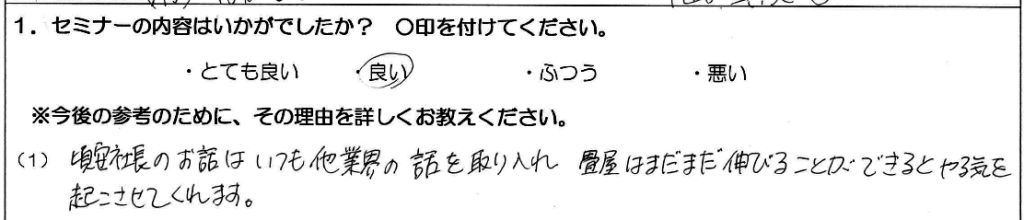 1. セミナーの内容はいかがでしたか？ ○印を付けてください。
・とても良い ・良い ・ふつう ・悪い
※今後の参考のために、その理由を詳しくお教えください。
(1) 社長のお話はいつも他業界の話を取り入れ 畳屋はまだまだ伸びることができるとやる気を
起こさせてくれます。